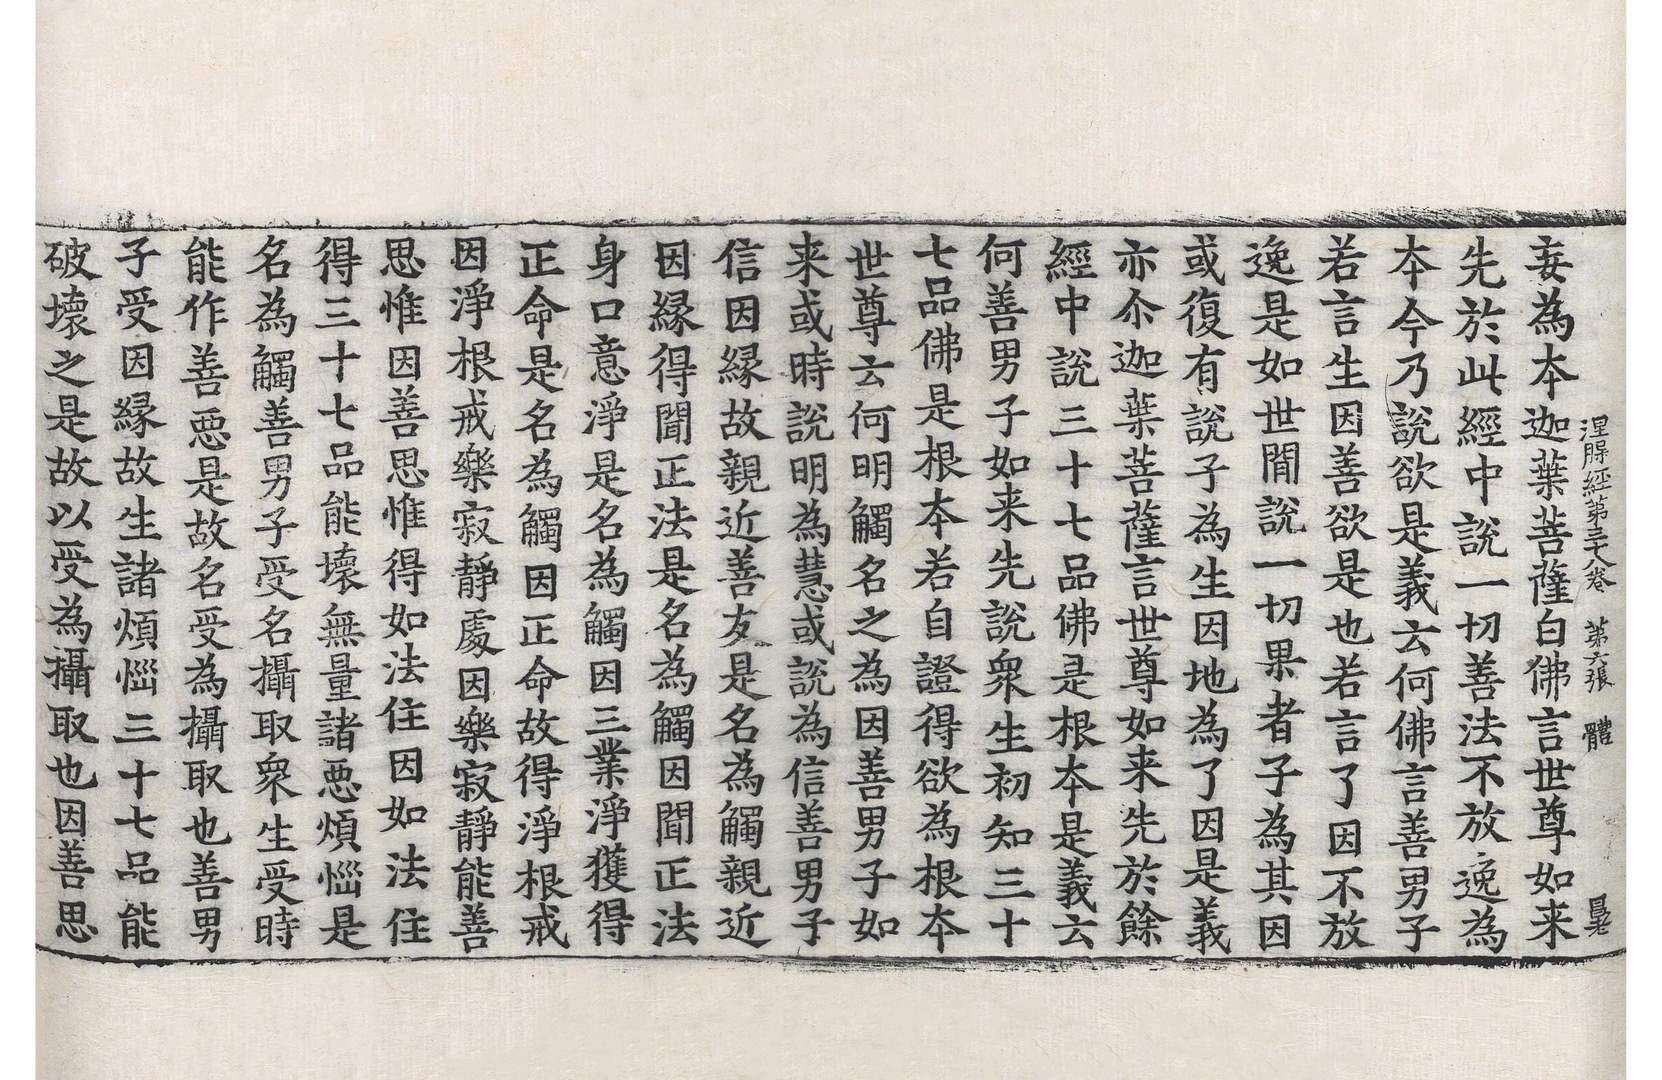 涅槃經第三十八卷 第六張 體
妄為本迦葉菩薩白佛言世尊如来
先於此經中說一切善法不放逸為
本今乃說欲是義云何佛言善男子
若言生因善欲是也若言了因不放
逸是如世間說一切果者子為其因
或復有說子為生因地為了因是義
亦尒迦葉菩薩言世尊如来先於餘
經中說三十七品佛是根本是義云
何善男子如来先說衆生初知三十
七品佛是根本若自證得欲為根本
世尊云何明觸名之為因善男子如
来或時說明為慧或說為信善男子
信因緣故親近善友是名為觸親近
因緣得聞正法是名為觸因聞正法
身口意淨是名為觸因三業淨獲得
正命是名為觸因正命故得淨根戒
因淨根戒樂寂靜處因樂寂靜能善
思惟因善思惟得如法住因如法住
得三十七品能壞無量諸惡煩惱是
名為觸善男子受名攝取衆生受時
能作善惡是故名受為攝取也善男
子受因緣故生諸煩惱三十七品能
破壞之是故以受為攝取也因善思